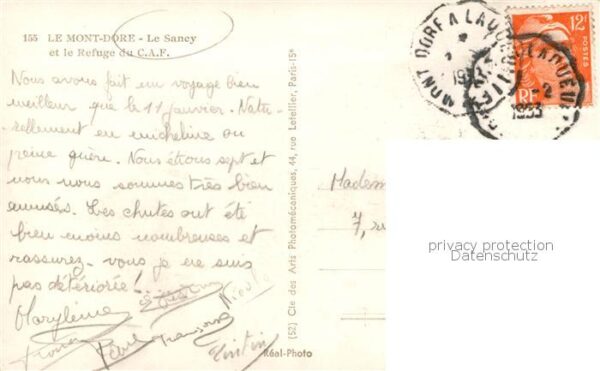 155 LE MONT-DORE - Le Sancy
et le Refuge du C.A.F.
Nous avons fait un voyage bien
meilleur que le 11 janvier. Natu-
rellement en micheline on
peine guère. Nous étions sept et
nous nous sommes très bien
amusés. Les chutes ont été
bien moins nombreuses et
rassurez-vous je ne suis
pas détériorée!
Marylène
Nicole
Tintin
(52) Cie des Arts Photomécaniques, 44, rue Letellier, Paris-15e
Réel-Photo
MONT DORE A LAQUEUILLE
12F
POSTES
RF
LAQUEU
-2
1953
Madem
7, ru
privacy protection
Datenschutz